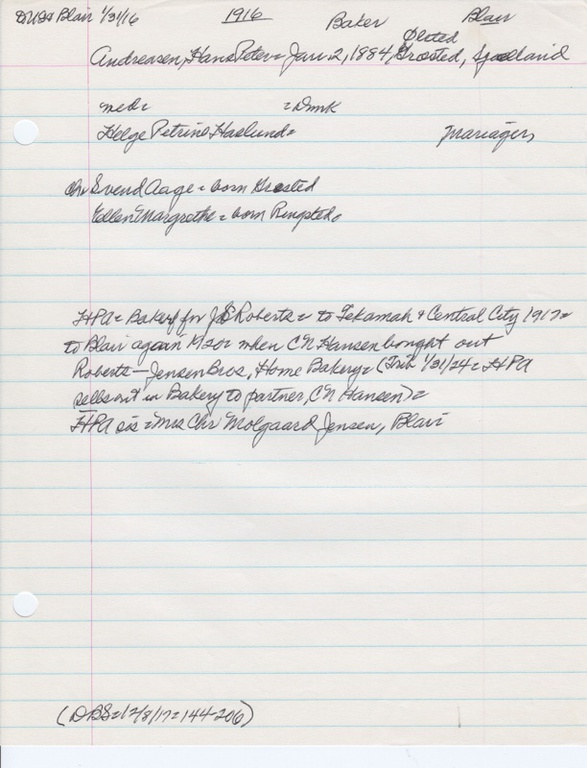 Blair 1/31/16 1916 Baker Blair
Ølsted
Andreasen, Hans Peter = Jan 2, 1884, Græsted, Sjælland
med = = Dmk
Helge Petrine Haslund =
ch = Svend Aage = born Græsted
Ellen Margrethe = born Ringsted.
HPA = Bakery for JS Roberts = to Tekamah & Central City 1917 =
to Blair again 1920 = when CN Hansen bought out
Roberts - Jensen Bros, Home Bakery = (Trib 1/31/24 = HPA
sells out in Bakery to partner, CN Hansen) =
HPA sis = Mrs Chr Molgaard Jensen, Blair
(DBS = 12/8/17 = 144-206)